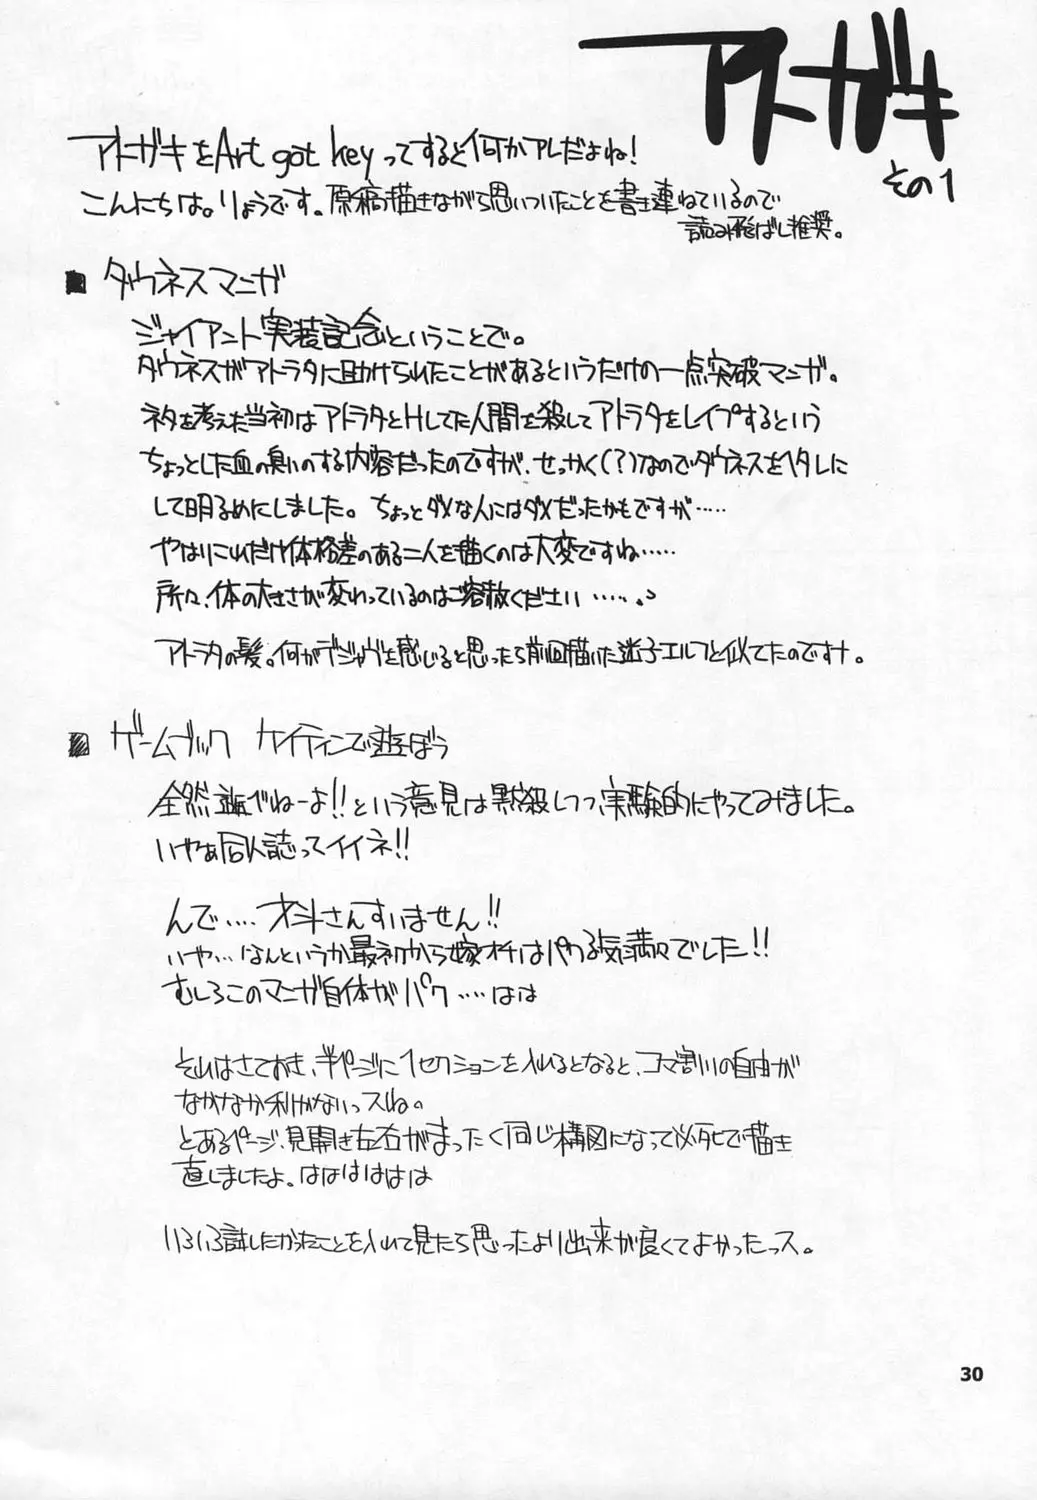 アトガキ
その1
アトガキをArt got keyってすると何かアレだよね!
こんにちは。りょうです。原稿描きながら思いついたことを書き連ねているので
読み飛ばし推奨。
■ ダウネスマンガ
ジャイアント実装記念ということで。
ダウネスがアトラタに助けられたことがあるというだけの一点突破マンガ。
ネタを考えた当初はアトラタとHしてた人間を殺してアトラタをレイプするという
ちょっとした血の臭いのする内容だったのですが、せっかく(?)なのでダウネスをヘタレに
して明るめにしました。ちょっとダメな人にはダメだったかもですが……
やはりこれだけ体格差のある二人を描くのは大変ですね……
所々、体の大きさが変わっているのはご容赦ください……。
アトラタの髪。何かデジャヴを感じると思ったら前回描いた迷子エルフと似てたのですナ。
■ ゲームブック ケイティンで遊ぼう
全然遊べねーよ!!という意見は黙殺しつつ実験的にやってみました。
いやぁ同人誌ってイイネ!!
んで…. 才斗さんすいません!!
いや… なんというか最初から嫁オチはパクる気満々でした!!
むしろこのマンガ自体がパク….はは
それはさておき、半ページに1セクションを入れるとなると、コマ割りの自由が
なかなか利かないっスね。
とあるページ、見開き左右がまったく同じ構図になって必死で描き
直しましたよ。はははははは
いろいろ試したかったことを入れて見たら思ったより出来が良くてよかったっス。
30